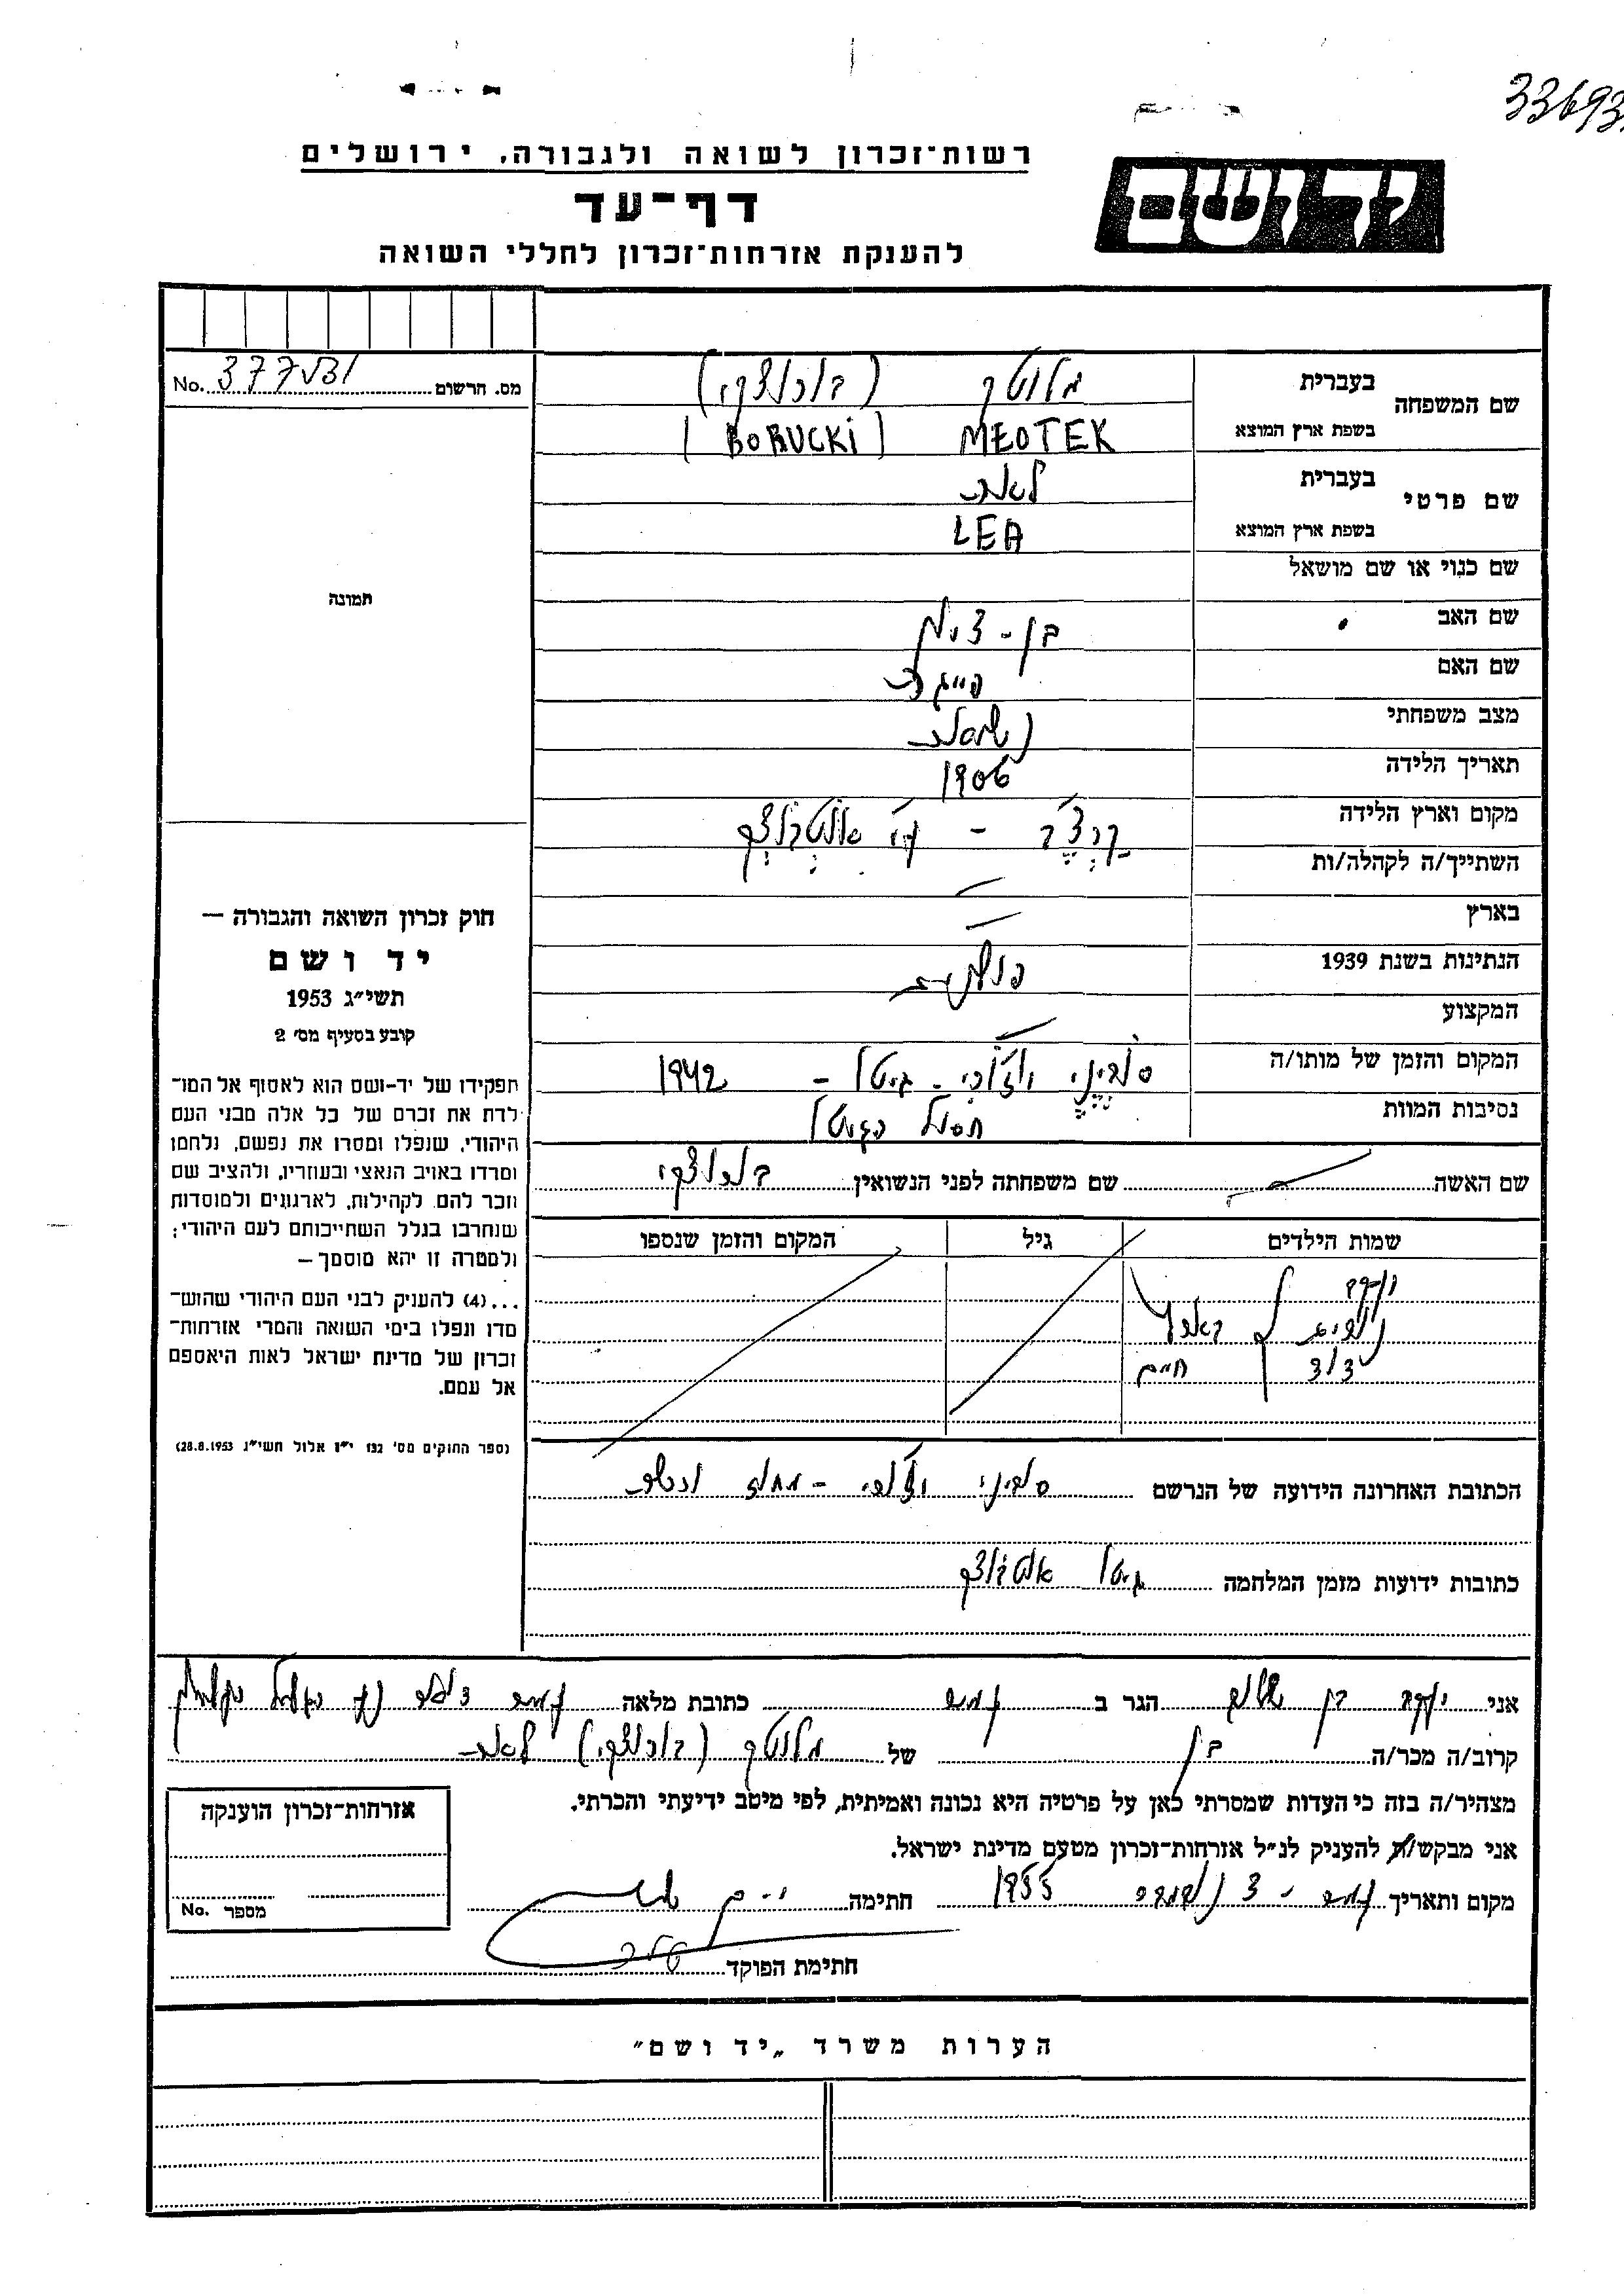 33693
רשות־זכרון לשואה ולגבורה, ירושלים
יד ושם
דף־עד
להענקת אזרחות־זכרון לחללי השואה
מס. הרשום No.
שם המשפחה
בעברית מלוטק (בורוצקי)
בשפת ארץ המוצא MŁOTEK (BORUCKI)
שם פרטי
בעברית לאה
בשפת ארץ המוצא LEA
שם כנוי או שם מושאל
שם האב בן-ציון
שם האם פייגה
מצב משפחתי נשואה
תאריך הלידה 1906
מקום וארץ הלידה
השתייך/ה לקהלה/ות —
בארץ —
הנתינות בשנת 1939 פולניה
המקצוע —
המקום והזמן של מותו/ה גיטו - 1942
נסיבות המוות חסול הגיטו
שם האשה שם משפחתה לפני הנשואין בורוצקי
שמות הילדים גיל המקום והזמן שנספו
יעקב
בארץ
דוד חיים
הכתובת האחרונה הידועה של הנרשם
כתובות ידועות מזמן המלחמה גיטו
תמונה
חוק זכרון השואה והגבורה —
יד ושם
תשי״ג 1953
קובע בסעיף מס׳ 2
תפקידו של יד-ושם הוא לאסוף אל המו־
לדת את זכרם של כל אלה מבני העם
היהודי, שנפלו ומסרו את נפשם, נלחמו
ומרדו באויב הנאצי ובעוזריו, ולהציב שם
וזכר להם, לקהילות, לארגונים ולמוסדות
שנחרבו בגלל השתייכותם לעם היהודי;
ולמטרה זו יהא מוסמך —
...(4) להעניק לבני העם היהודי שהוש־
מדו ונפלו בימי השואה והמרי אזרחות־
זכרון של מדינת ישראל לאות היאספם
אל עמם.
(ספר החוקים מס׳ 132 י״ז אלול תשי״ג 28.8.1953)
אני יעקב בן הגר ב כתובת מלאה
קרוב/ה מכר/ה בן של מלוטק (בורוצקי) לאה
מצהיר/ה בזה כי העדות שמסרתי כאן על פרטיה היא נכונה ואמיתית, לפי מיטב ידיעתי והכרתי.
אני מבקש/ת להעניק לנ״ל אזרחות־זכרון מטעם מדינת ישראל.
מקום ותאריך 1955 חתימה
חתימת הפוקד
אזרחות־זכרון הוענקה
מספר No.
הערות משרד „יד ושם״